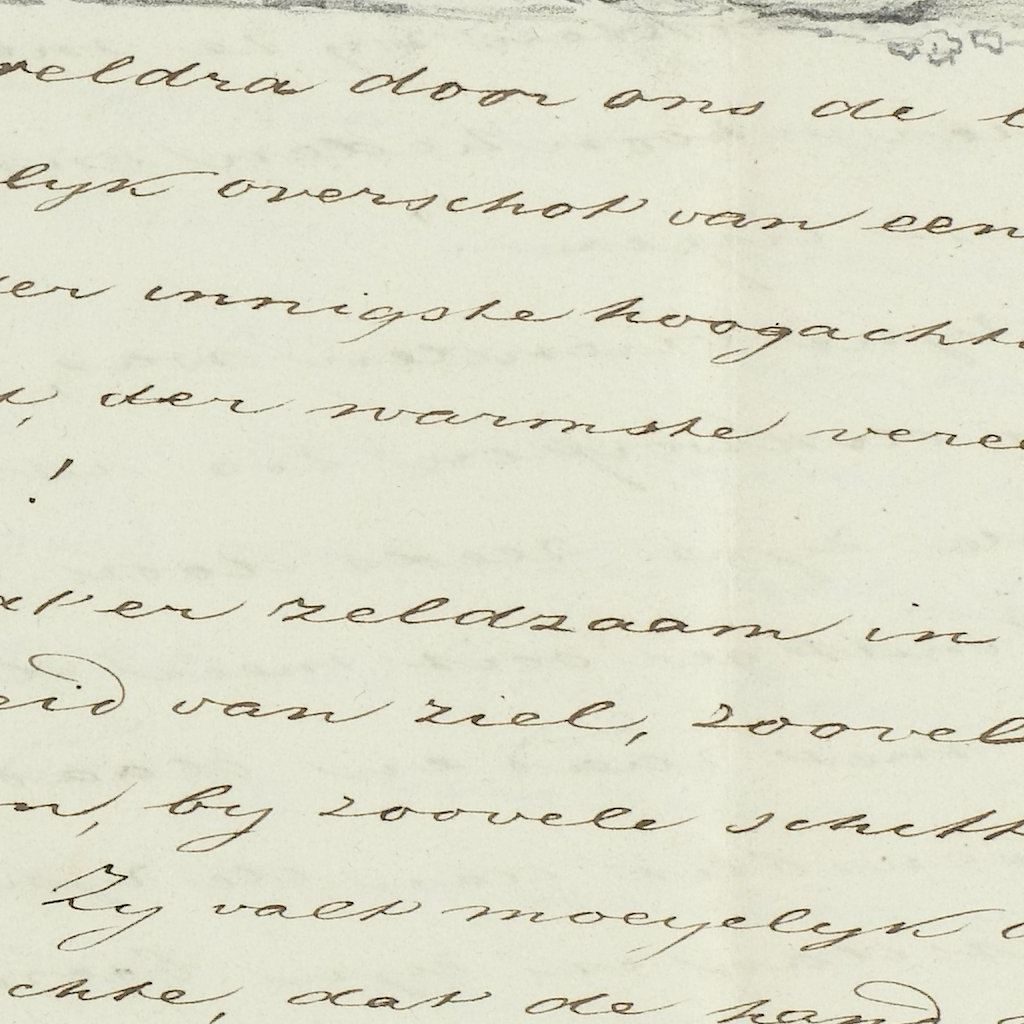 weldra door ons de
lyk overschot van een
er innigste hoogacht
t, der warmste veree
!
at er zeldzaam in
eid van ziel, zoovel
n, by zoovele schitt
Zy valt moeyelyk
chte, dat de hand